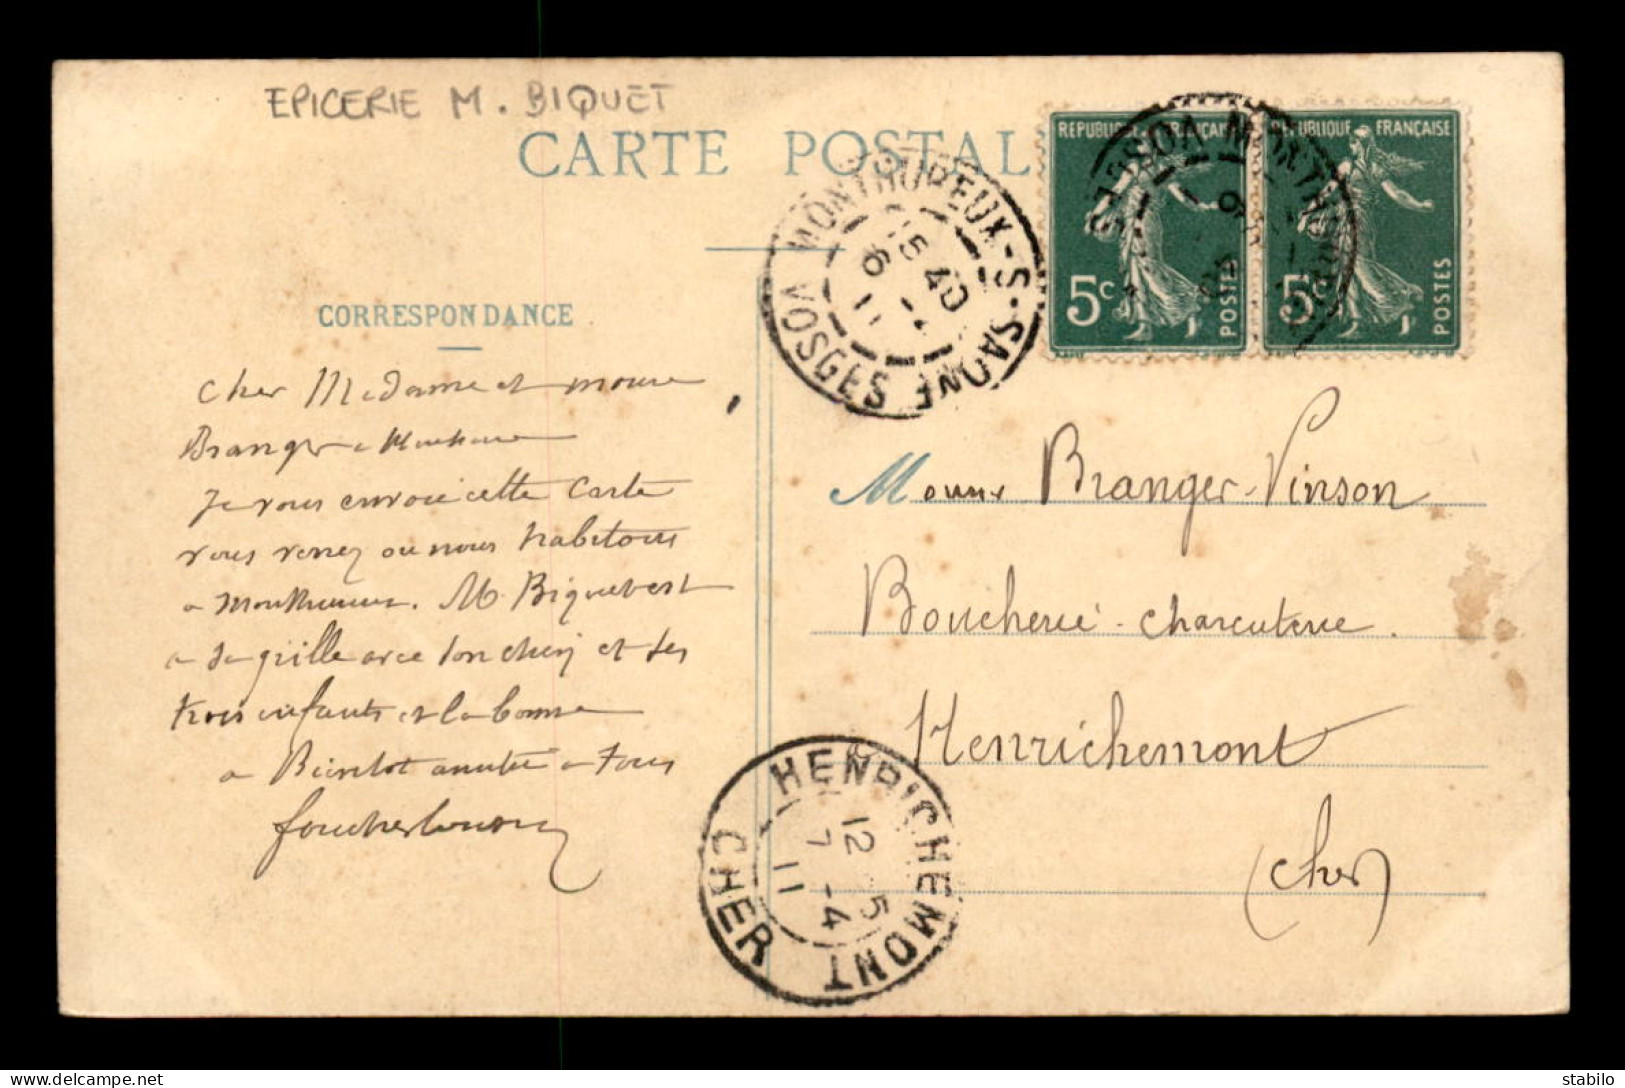 EPICERIE M. BIQUET
CARTE POSTAL
REPUBLIQUE FRANÇAISE
5c POSTES
REPUBLIQUE FRANÇAISE
5c POSTES
MONTHUREUX-S-SAONE
15 40
6 -4
11
VOSGES
CORRESPONDANCE
cher Madame et
Branger
Je vous envoie cette Carte
vous verrez ou nous habitons
a M. Biquet est
a sa grille avec son chien et ses
trois enfants et la bonne
a Bientot amitié a tous
M Branger-Vinson
Boucherie-charcuterie.
Henrichemont
(cher)
HENRICHEMONT
12 5
7 -4
11
CHER
stabilo
delcampe.net